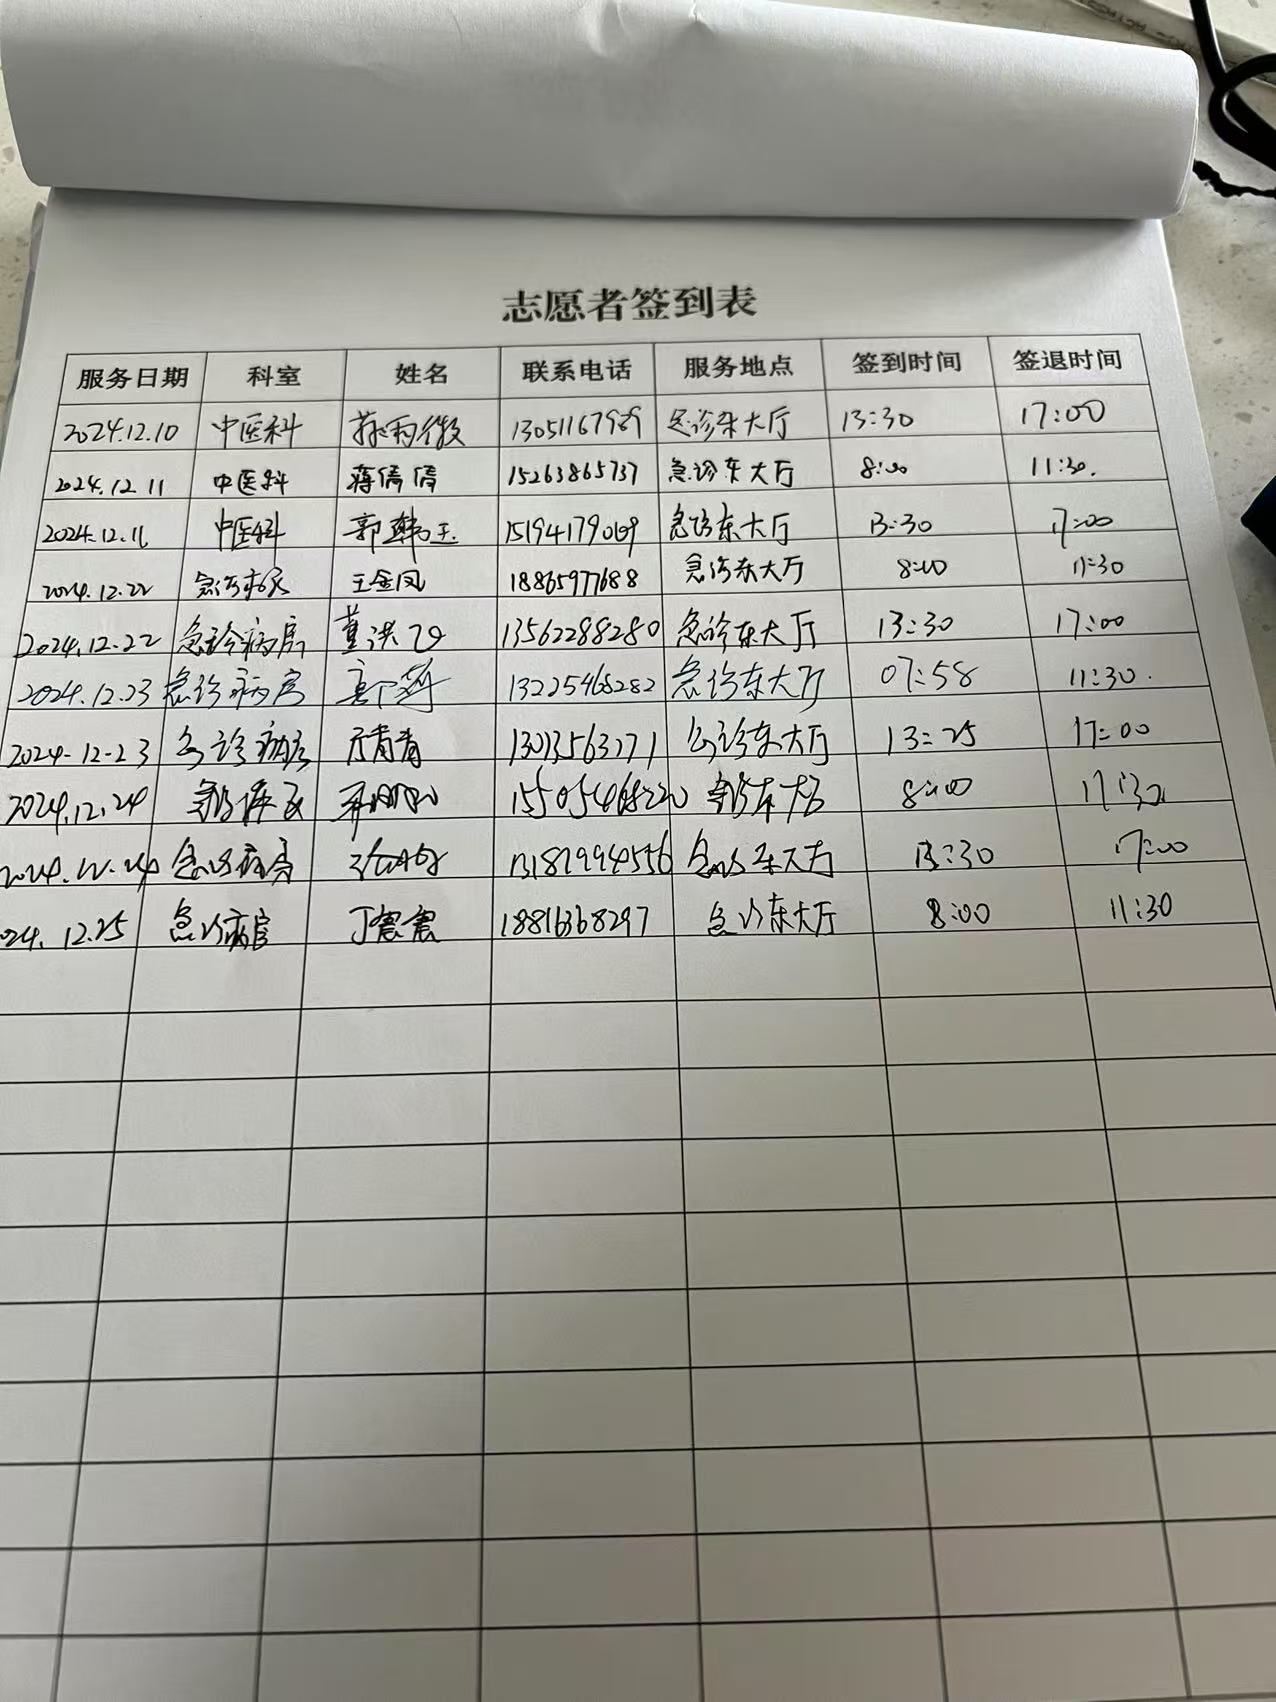 志愿者签到表
服务日期 科室 姓名 联系电话 服务地点 签到时间 签退时间
2024.12.10 中医科 苏雨微 13051167989 急诊东大厅 13:30 17:00
2024.12.11 中医科 蒋倩倩 15263865737 急诊东大厅 8:00 11:30.
2024.12.11 中医科 郭韩玉 15194179069 急诊东大厅 13:30 17:00
2024.12.22 急诊病房 王金凤 18865977688 急诊东大厅 8:00 11:30
2024.12.22 急诊病房 董洪 13562288280 急诊东大厅 13:30 17:00
2024.12.23 急诊病房 13225468282 急诊东大厅 07:58 11:30.
2024-12-23 急诊病房 青青 13013563271 急诊东大厅 13:25 17:00
2024.12.24 急诊病房 15505468220 急诊东大厅 8:00 11:30
2024.12.24 急诊病房 急诊东大厅 13:30 17:00
024. 12.25 急诊病房 丁震震 18816368297 急诊东大厅 8:00 11:30